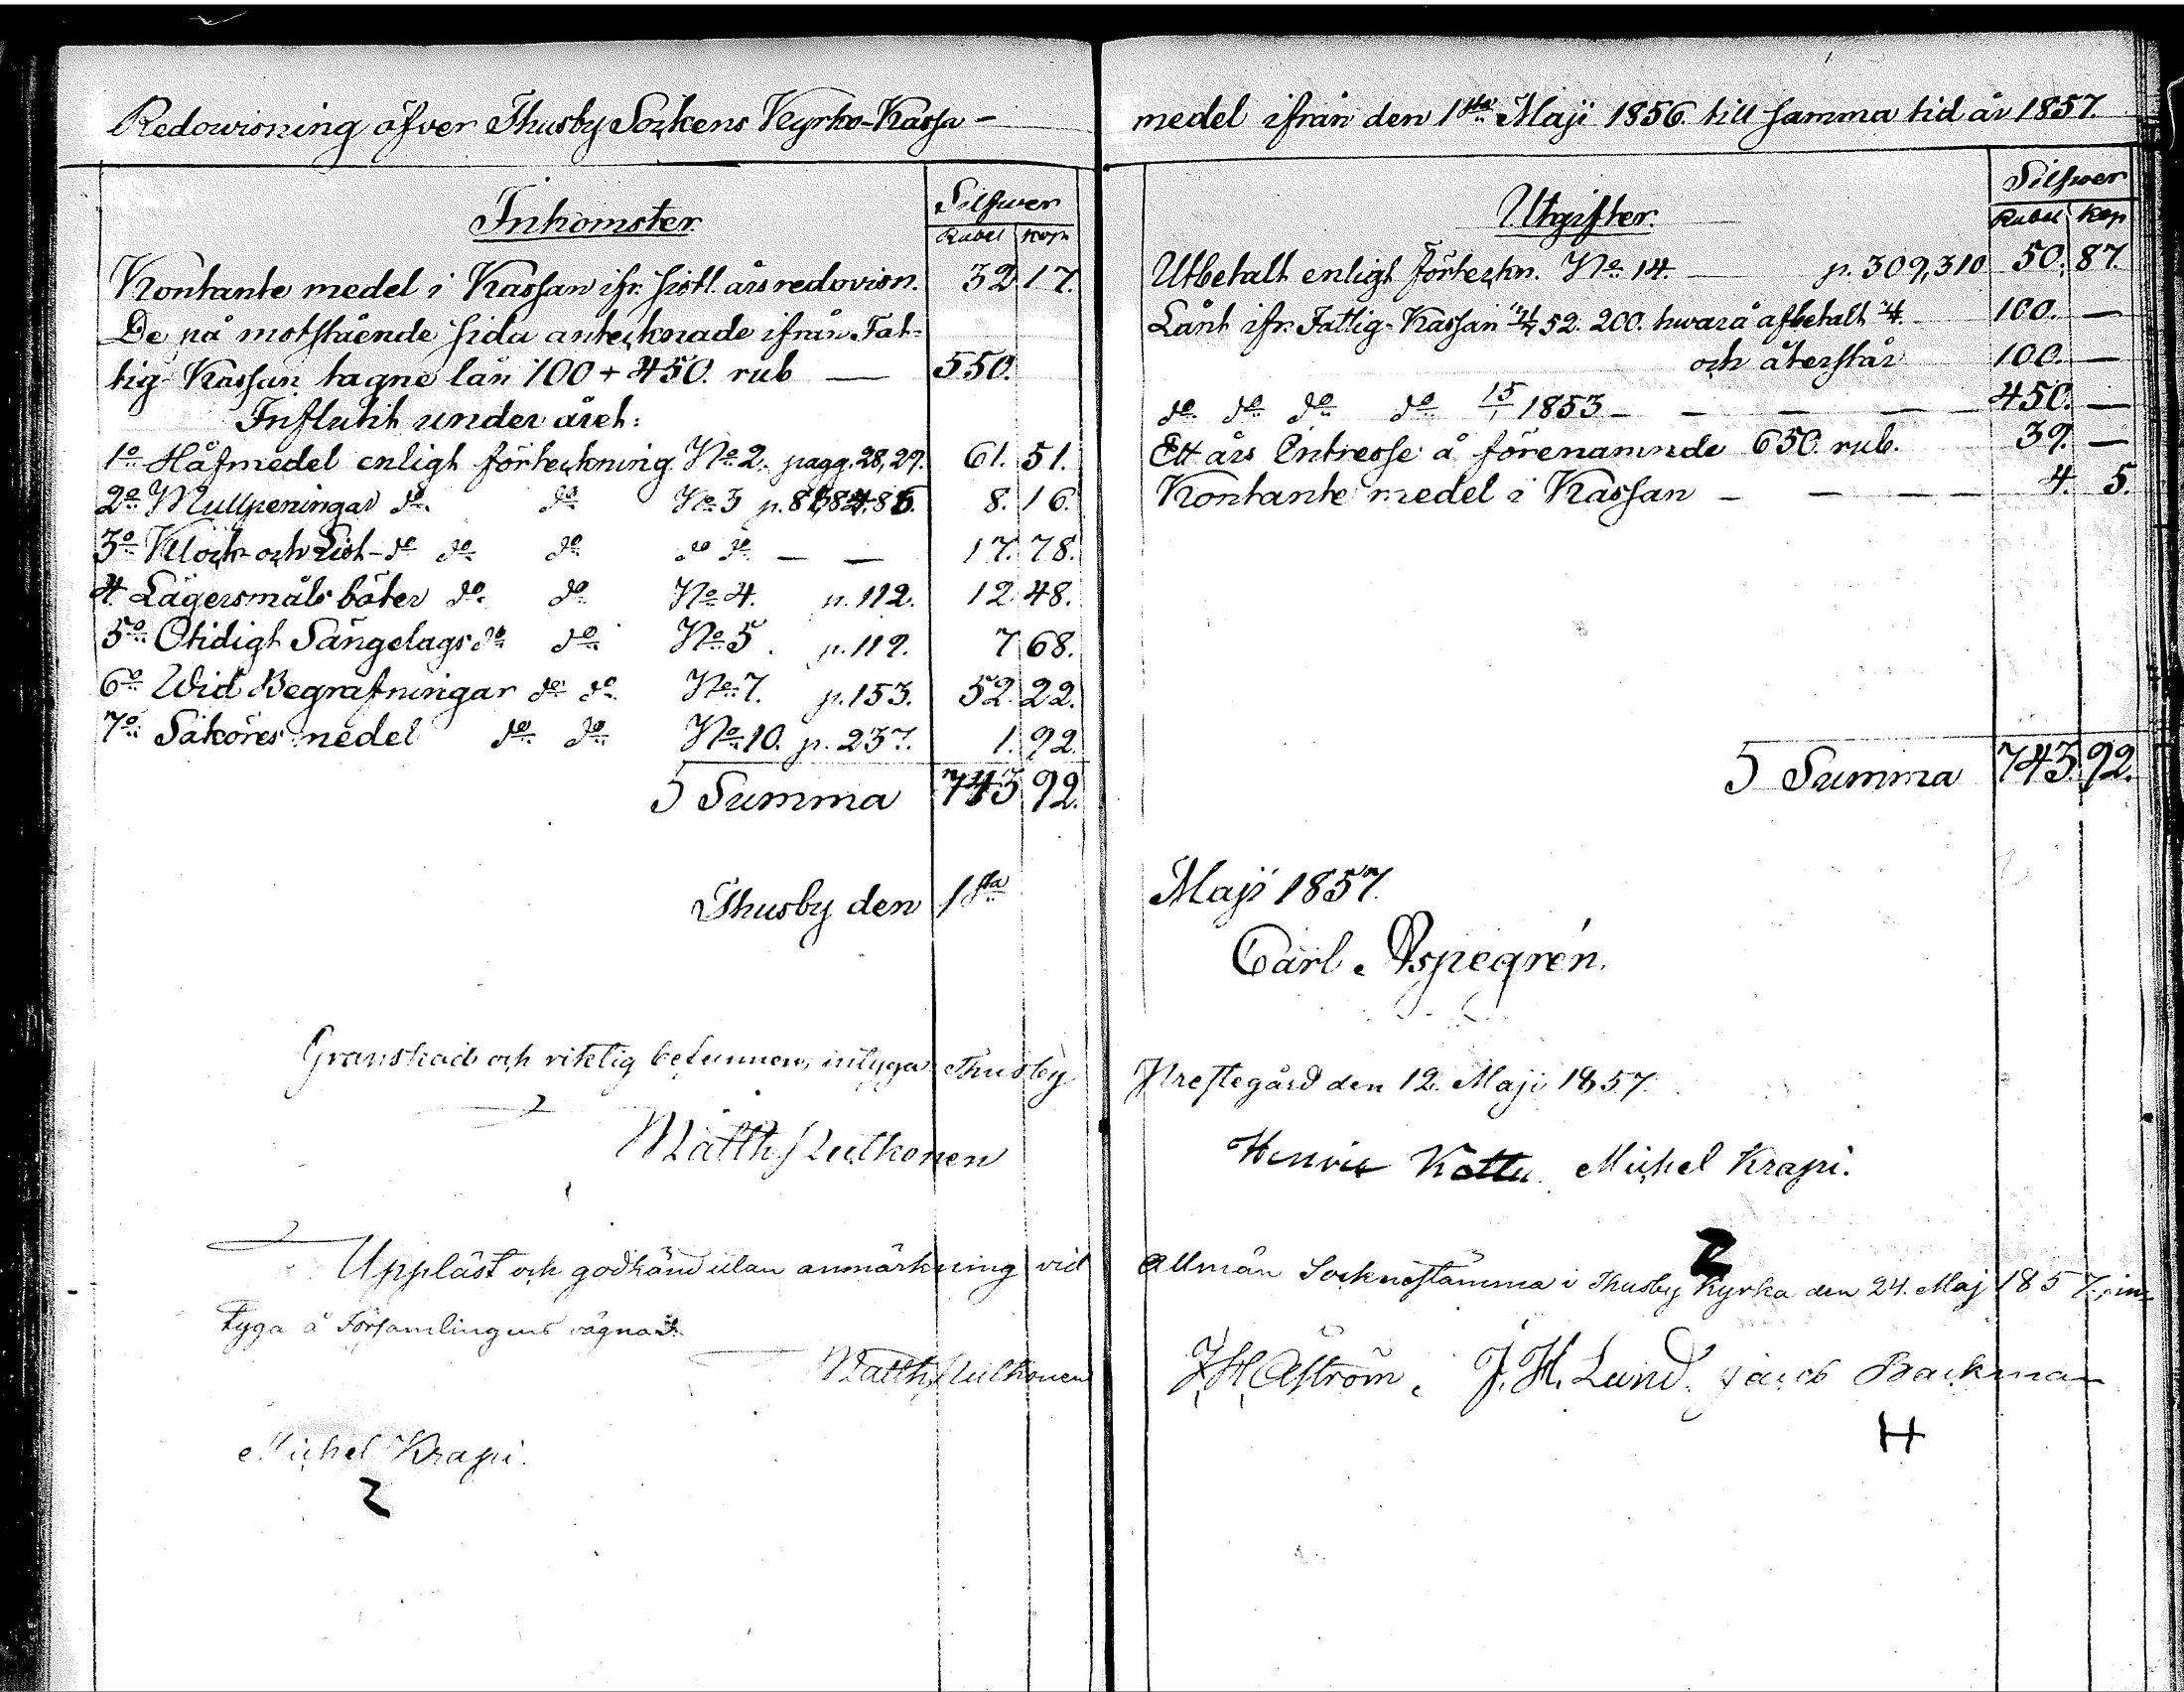 Redowisning öfver Thusby Sockens Kyrko-Kassa-
Inkomster
Silfwer
Rubel Kop
Kontante medel i Kassan ifr. sistl. års redovisn. 32 17.
De på motstående sida antecknade ifrån Fat-
tig-Kassan tagne lån 100 + 450. rub — 550.
Influtit under året:
1o Håfmedel enligt förteckning No 2. pagg. 28, 29. 61. 51.
2o Mullpeningar do. do No 3 8. 16.
3o Klock och List- do do do do do — — 17. 78.
4. Lägersmåls böter do. do. No 4. p. 112. 12 48.
5o Otidigt Sängelags do do No 5. p. 119. 7 68.
6o Wid Begrafningar do do No 7. p. 153. 52. 22.
7o Saköres medel do do No 10. p. 237. 1. 92.
Summa 743 92.
Thusby den 1sta
Granskad och riktig befunnen, intyga Thusby
Matth
Uppläst och godkänd utan anmärkning vid
tyga å Församlingens vägnar.
Matth
Michel Krapi.
medel ifrån den 1sta Maji 1856. till samma tid år 1857.
Utgifter.
Silfwer
Rubel Kop
Utbetalt enligt förteckn. No 14. — p. 309, 310 50. 87.
Lånt ifr. Fattig-Kassan 52. 200. hwarå afbetalt 100. —
och återstår 100. —
do do do do 15/1 1853 — — — — 450. —
Ett års Intresse å förenämnde 650. rub. 39. —
Kontante medel i Kassan — — — — 4. 5.
Summa 743. 92.
Maji 1857.
Carl Aspegrén.
Prestegård den 12. Maji 1857.
Henric Kottu. Michel Krapi.
Allmän Socknestämma i Thusby Kyrka den 24. Maj 1857., in-
J. H. Åström. J. H. Lund. Jacob Backman
H